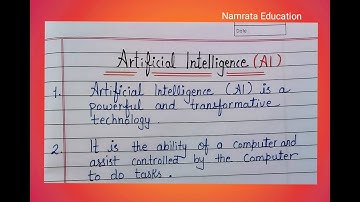 Namrata Education
Date
Artificial Intelligence (AI)
1. Artificial Intelligence (AI) is a
powerful and transformative
technology.
2. It is the ability of a computer and
assist controlled by the computer
to do tasks.